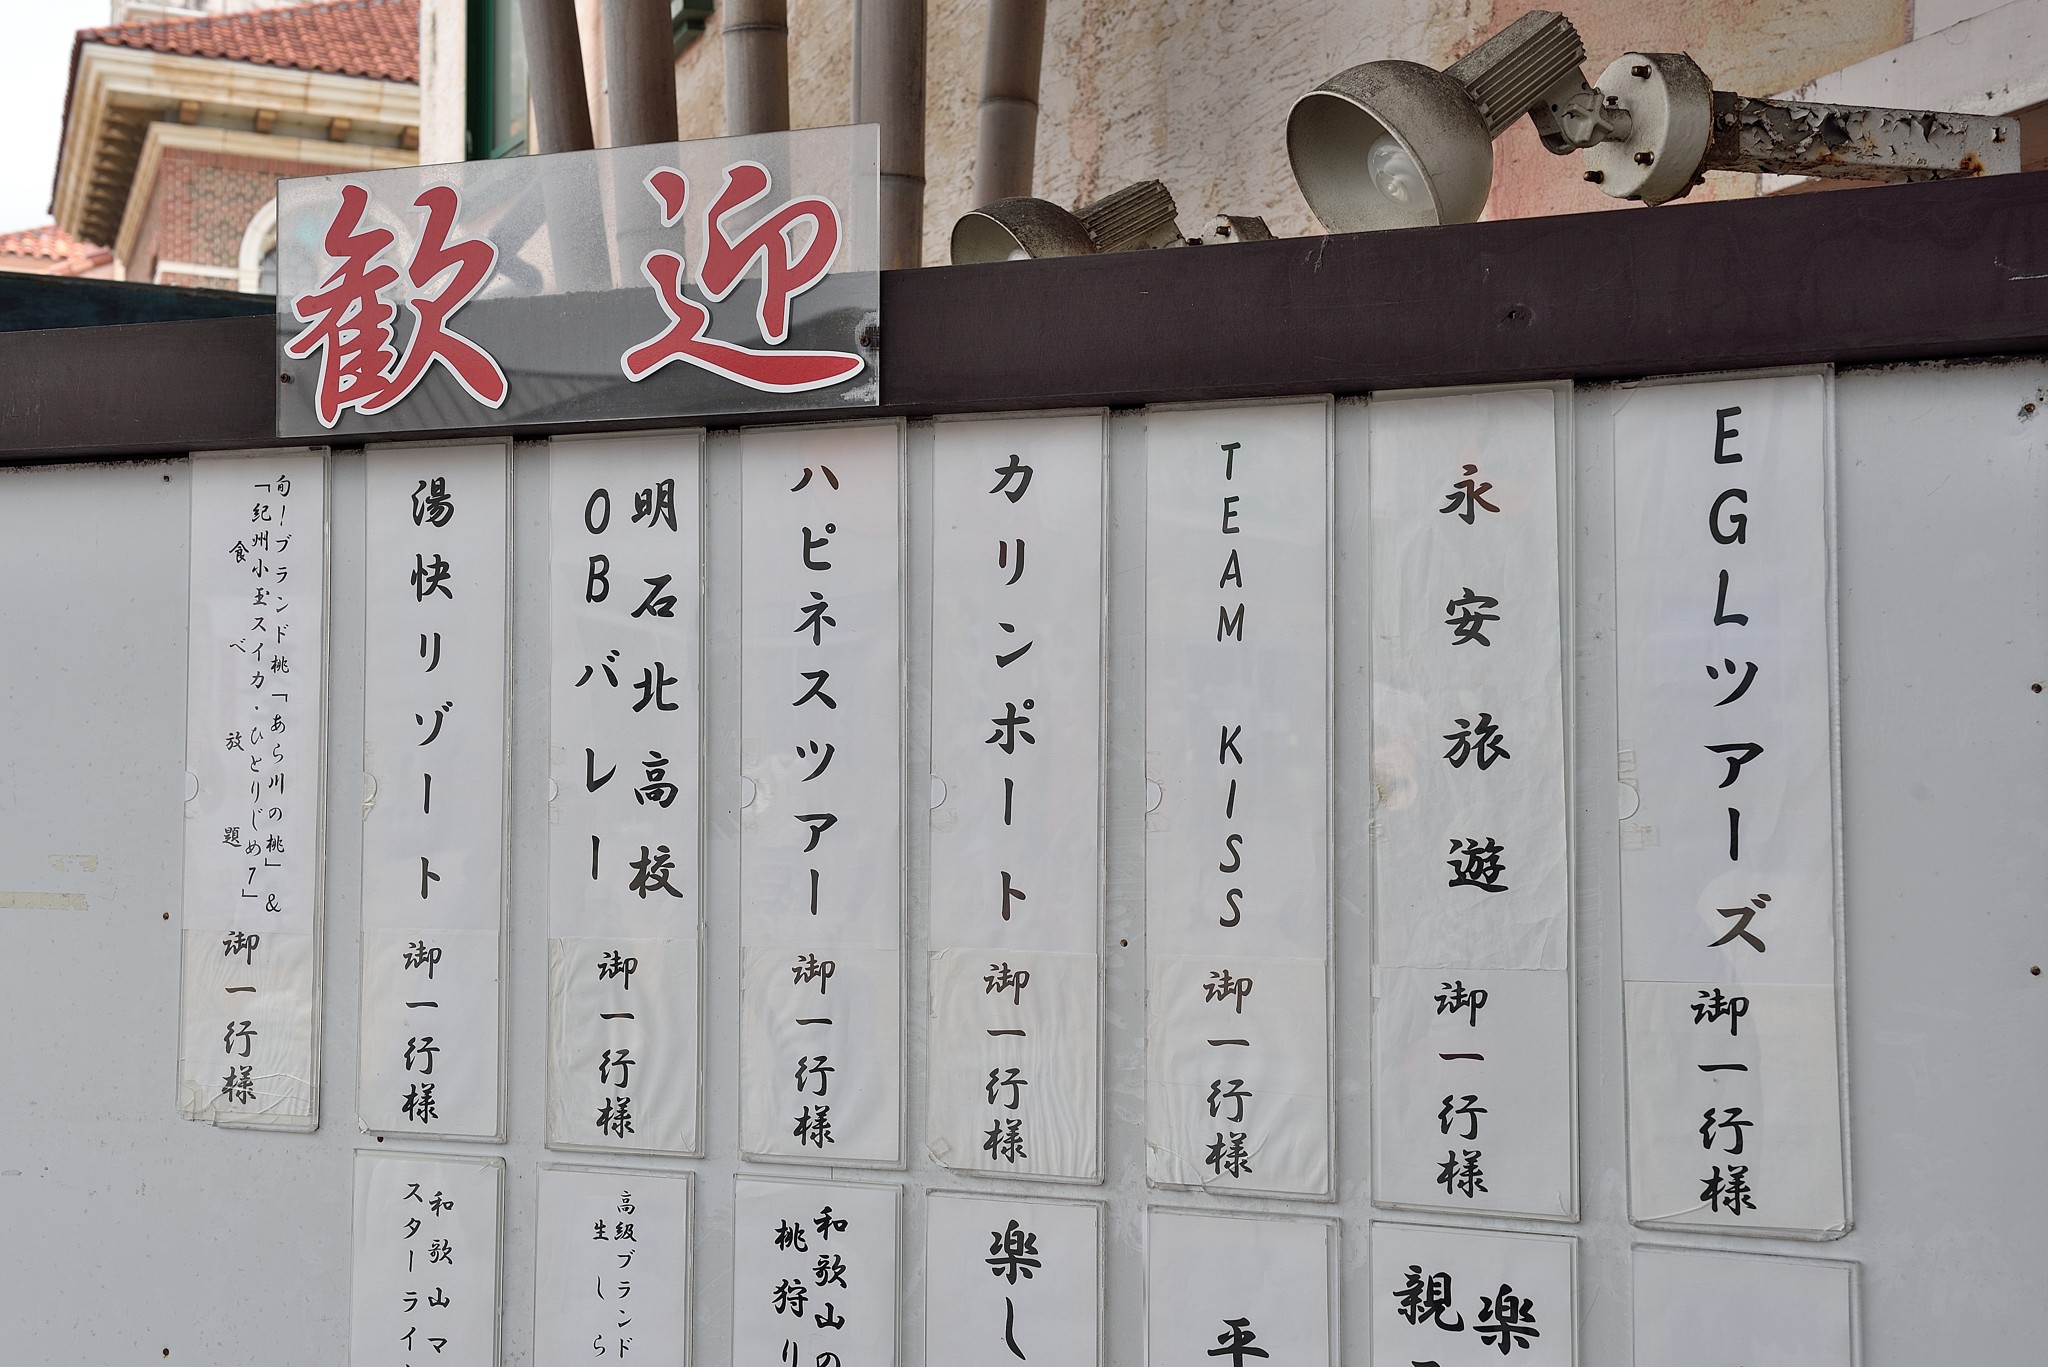 歓迎
EGLツアーズ
御一行様
永安旅遊
御一行様
TEAM KISS
御一行様
カリンポート
御一行様
ハピネスツアー
御一行様
明石北高校
OBバレー
御一行様
湯快リゾート
御一行様
旬ーブランド桃「あら川の桃」&
「紀州小玉スイカ・ひとりじめ7」
食べ放題
御一行様
楽
親
平
楽し
和歌山の
桃狩り
高級ブランド
生しら
和歌山マ
スターライ